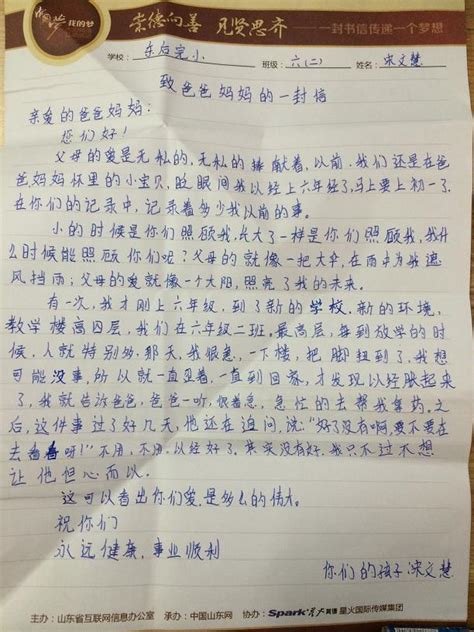 中国梦 我的梦 崇德向善 见贤思齐 一封书信传递一个梦想
学校: 东后完小 班级: 六(二) 姓名: 宋文慧
致爸爸妈妈的一封信
亲爱的爸爸妈妈:
您们好!
父母的爱是无私的,无私的捧献着,以前,我们还是在爸
爸妈妈怀里的小宝贝,眨眼间我以经上六年经了,马上要上初一了.
在你们的记录中,记录着多少我以前的事。
小的时候是你们照顾我,长大了一样是你们照顾我,我什
么时候能照顾你们呢?父母的就像一把大伞,在雨中为我遮
风挡雨;父母的爱就像一个太阳,照亮了我的未来.
有一次,我才刚上六年级,到了新的学校.新的环境,
教学楼高四层,我们在六年级二班,最高层,每到放学的时
候,人就特别多.那天,我很急,一下楼,把脚扭到了,我想
可能没事,所以就一直忍着,一直到回家,才发现以经肿起来
了,我就告诉爸爸,爸爸一听,很着急,急忙的去帮我拿药.之
后,这件事过了好几天,他还在追问,说:"好了没有啊,要不要在
去看看呀!"不用,不用,以经好了.其实没有好,我只不过不想
让他但心而以.
这可以看出你们爱是多么的伟大.
祝你们
永远健康,事业顺利
你们的孩子宋文慧
主办:山东省互联网信息办公室 承办:中国山东网 协办:Spark星火英语 星火国际传媒集团